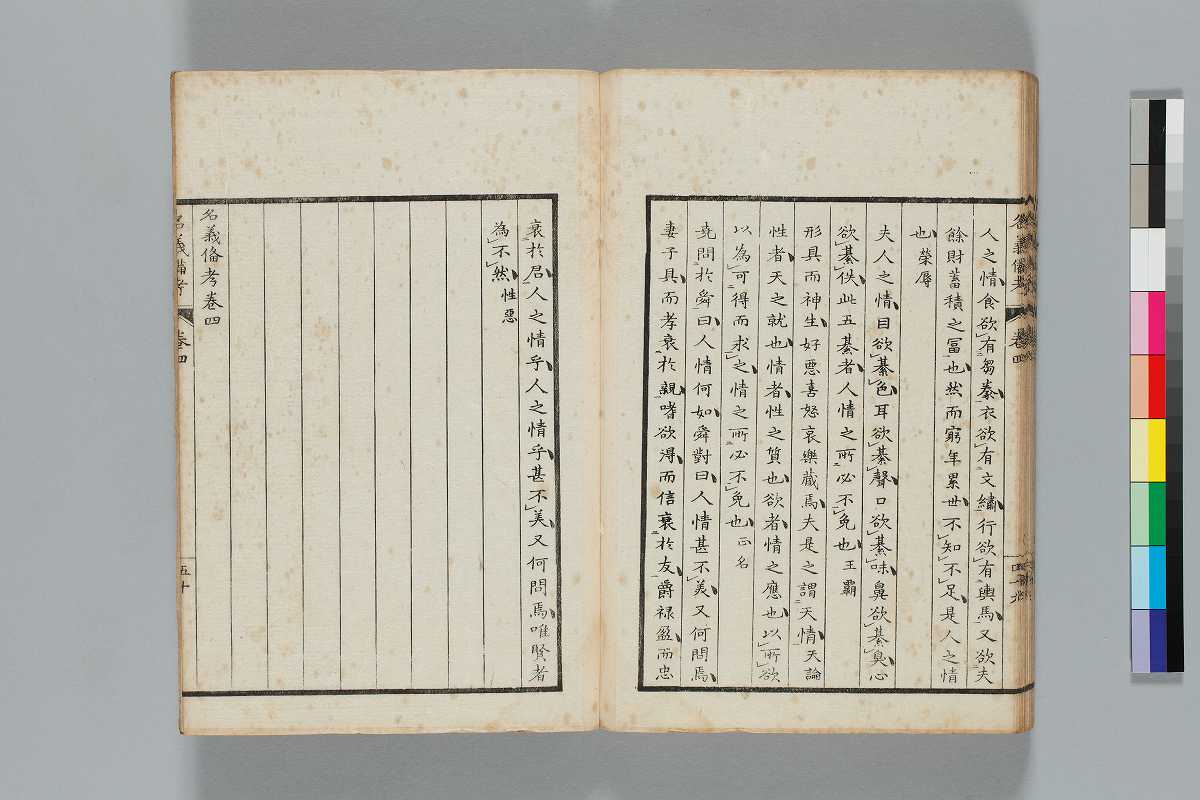 人之情食欲有芻豢衣欲有文繡行欲有輿馬又欲夫
餘財蓄積之冨也然而窮年累世不知不足是人之情
也榮辱
夫人之情目欲綦色耳欲綦聲口欲綦味臭欲綦臭心
欲綦佚此五綦者人情之所必不免也王霸
形具而神生好悪喜怒哀樂藏焉夫是之謂天情天論
性者天之就也情者性之質也欲者情之應也以所欲
以為可得而求之情之所必不免也正名
堯問於舜曰人情何如舜對曰人情甚不美又何問焉
妻子具而孝衰於親嗜欲得而信衰於友爵禄盈而忠
衰於君人之情乎人之情乎甚不美又何問焉唯賢者
為不然性惡
名義備考卷四
名義備考
卷四
五十